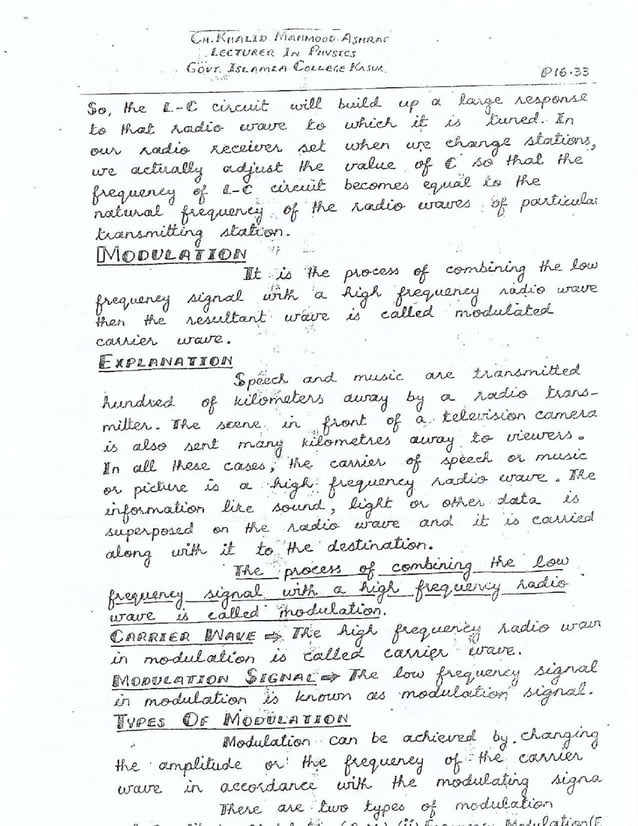 CH. KHALID MAHMOOD ASHRAF
LECTURER IN PHYSICS
GOVT. ISLAMIA COLLEGE KASUR
P16.33
So, the L-C circuit will build up a large response
to that radio wave to which it is tuned. In
our radio receiver set when we change stations,
we actually adjust the value of C so that the
frequency of L-C circuit becomes equal to the
natural frequency of the radio waves of particular
transmitting station.
MODULATION
It is the process of combining the low
frequency signal with a high frequency radio wave
then the resultant wave is called modulated
carrier wave.
EXPLANATION
Speech and music are transmitted
hundred of kilometers away by a radio trans-
mitter. The scene in front of a television camera
is also sent many kilometres away to viewers.
In all these cases, the carrier of speech or music
or picture is a high frequency radio wave. The
information like sound, light or other data is
superposed on the radio wave and it is carried
along with it to the destination.
The process of combining the low
frequency signal with a high frequency radio
wave is called modulation.
CARRIER WAVE ⇒ The high frequency radio wave
in modulation is called carrier wave.
MODULATION SIGNAL ⇒ The low frequency signal
in modulation is known as modulation signal.
TYPES OF MODULATION
Modulation can be achieved by changing
the amplitude or the frequency of the carrier
wave in accordance with the modulating signa
There are two types of modulation
(ii) Frequency Modulation (F